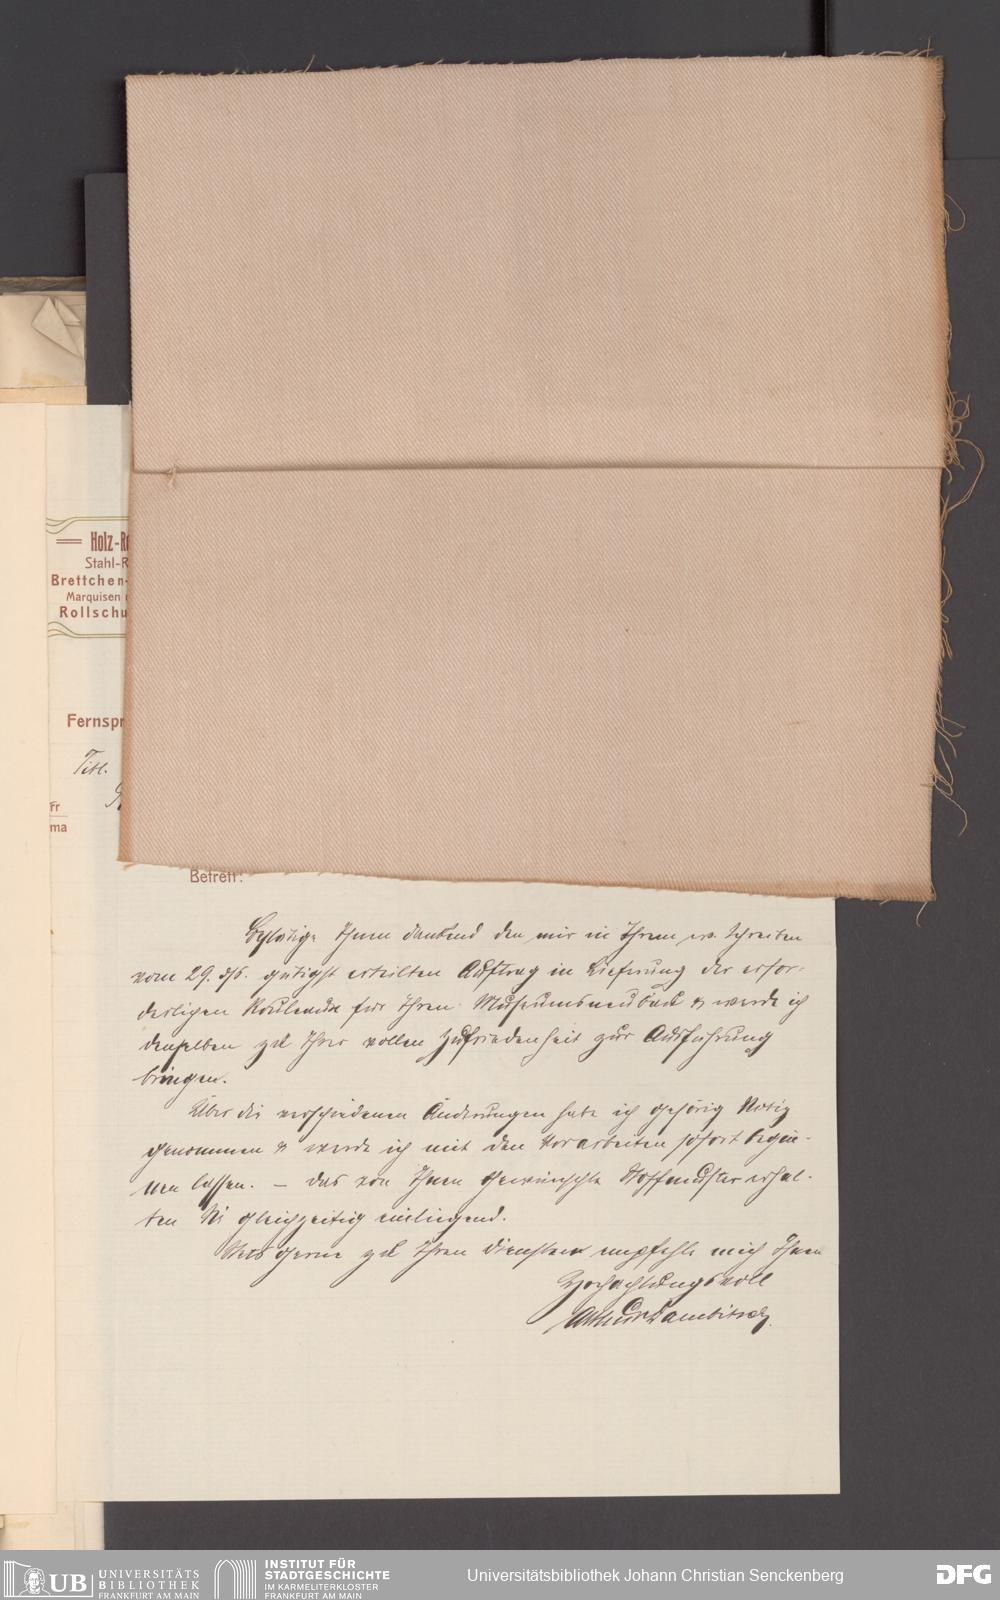 Holz-Ro
Stahl-R
Brettchen-
Marquisen
Rollschu
Fernspr
Titl.
Fr
ma
Betreff:
Bestätige Ihnen dankend den mir in Ihrem w. Schreiben
vom 29. ds. gütigst erteilten Auftrag in Lieferung der erfor-
derlichen Rouleaux für Ihren Museumsneubau & werde ich
denselben zu Ihrer vollen Zufriedenheit zur Ausführung
bringen.
Über die verschiedenen Änderungen habe ich gehörig Notiz
genommen & werde ich mit den Vorarbeiten sofort begin-
nen lassen. – Das von Ihnen gewünschte Stoffmuster erhal-
ten Sie gleichzeitig einliegend.
Stets gerne zu Ihren Diensten empfehle mich Ihnen
Hochachtungsvoll
Arthur Dambitsch
UB UNIVERSITÄTS
BIBLIOTHEK
FRANKFURT AM MAIN
INSTITUT FÜR
STADTGESCHICHTE
IM KARMELITERKLOSTER
FRANKFURT AM MAIN
Universitätsbibliothek Johann Christian Senckenberg
DFG